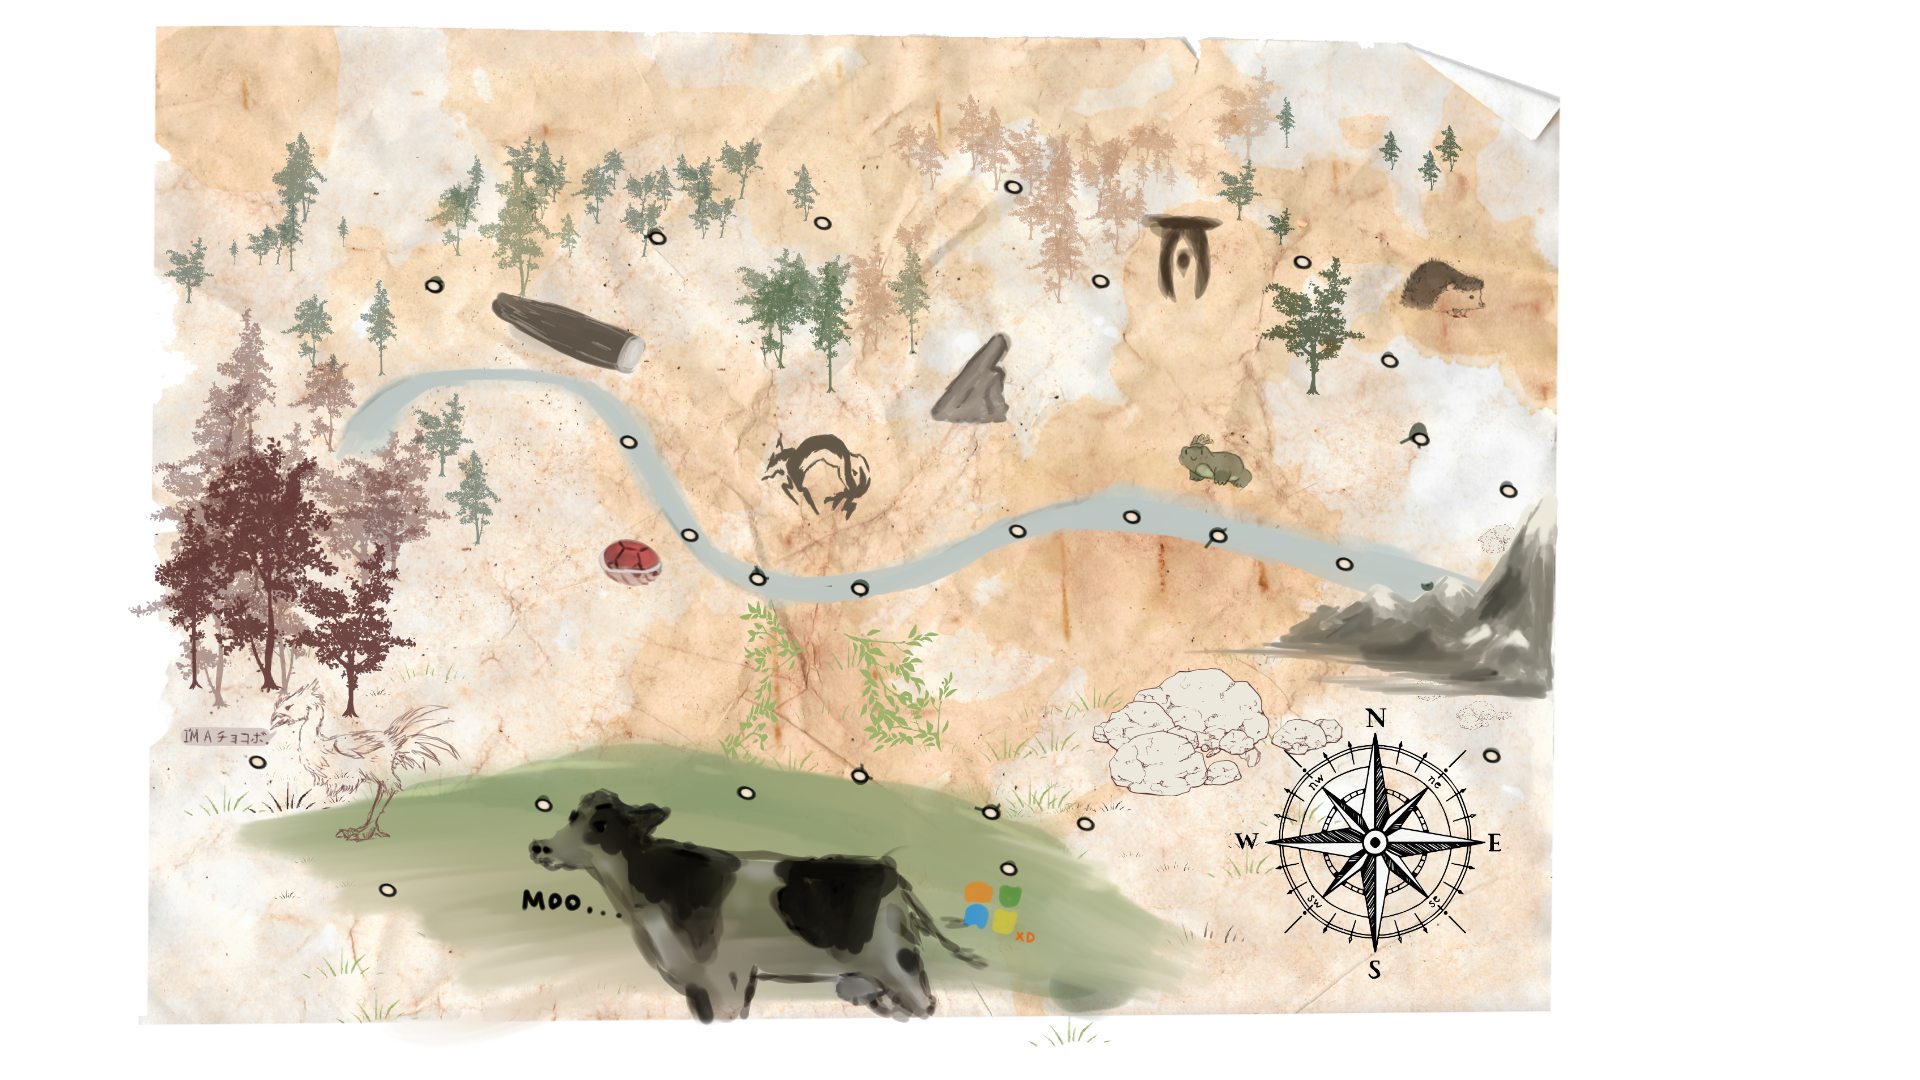 I'M A チョコボ.
MOO...
XD
N
nw
ne
W
E
sw
se
S